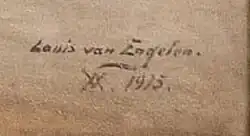 Louis van Engelen.
1915.